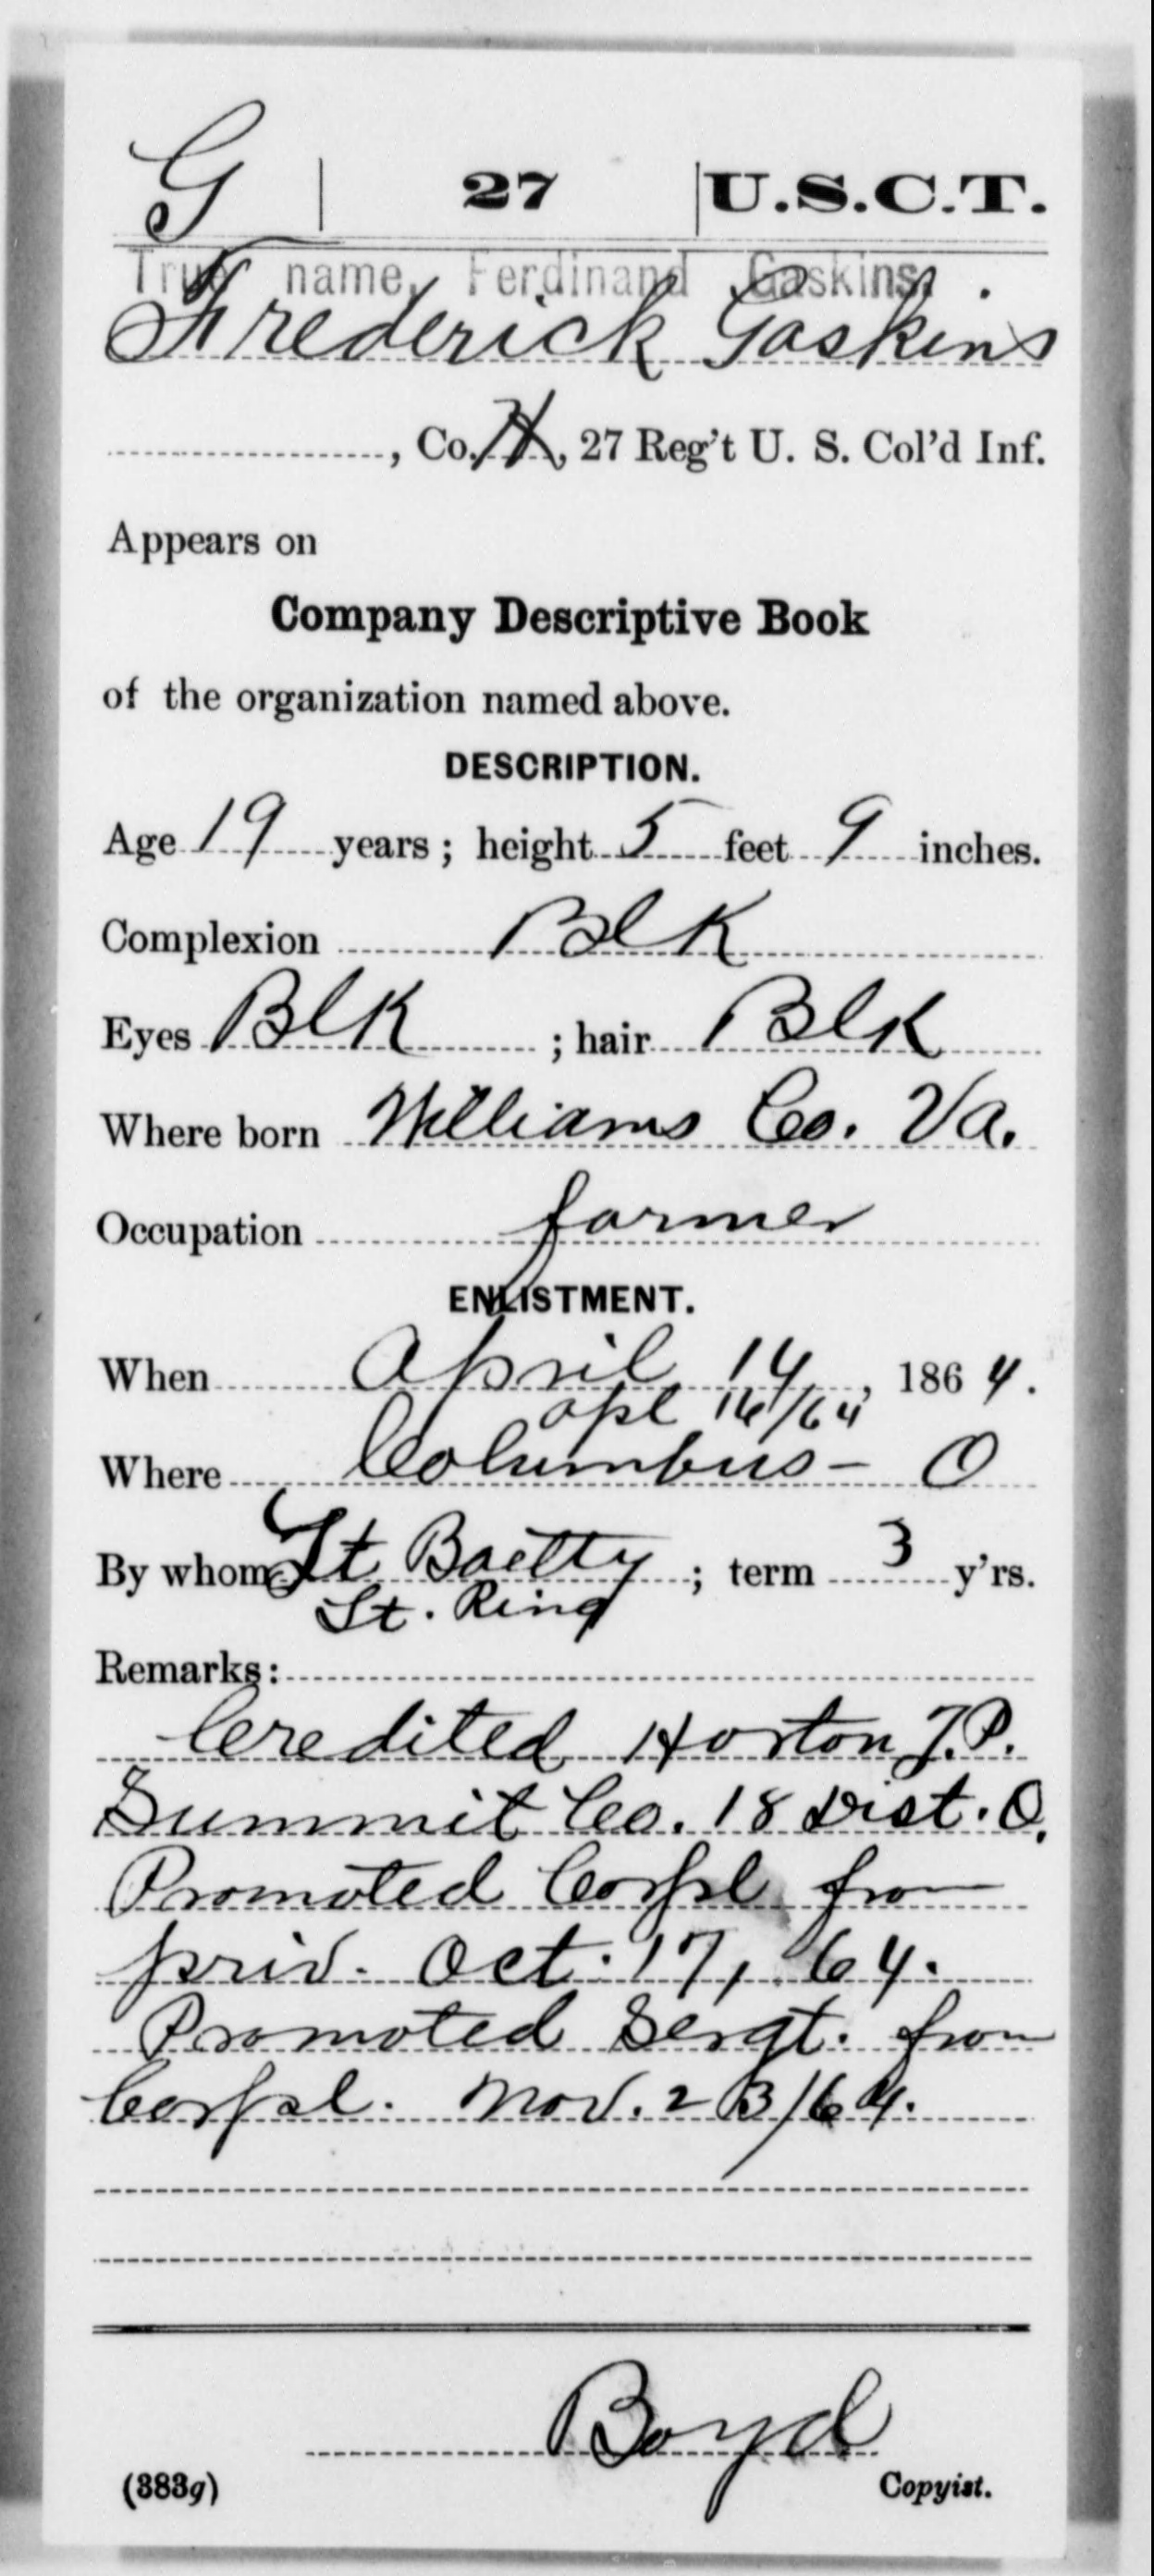 G | 27 | U.S.C.T.
True name, Ferdinand Gaskins.
Frederick Gaskins
, Co. H, 27 Reg't U. S. Col'd Inf.
Appears on
Company Descriptive Book
of the organization named above.
DESCRIPTION.
Age 19 years; height 5 feet 9 inches.
Complexion Blk
Eyes Blk ; hair Blk
Where born Williams Co. Va.
Occupation farmer
ENLISTMENT.
When April 14, 1864.
apl /64
Where Columbus - O
By whom Lt ; term 3 y'rs.
Lt. Ring
Remarks:
Credited Horton
Summit Co. 18 Dist. O.
Promoted Corpl from
priv. Oct. 17, 64.
Promoted Sergt. from
Corpl. Nov. 23/64.
Boyd
(383g) Copyist.